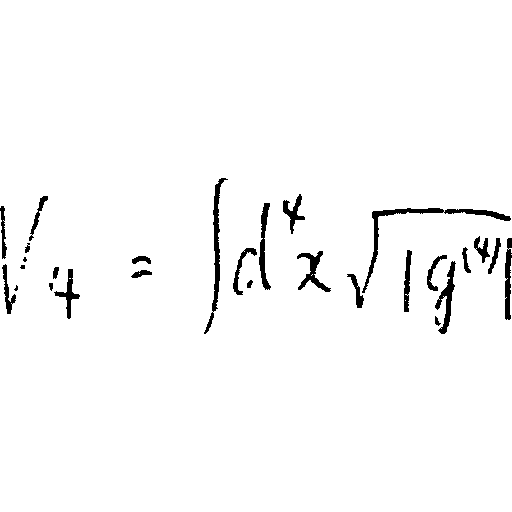 V_4 = \int d^4 x \sqrt{|g^{(4)}|}